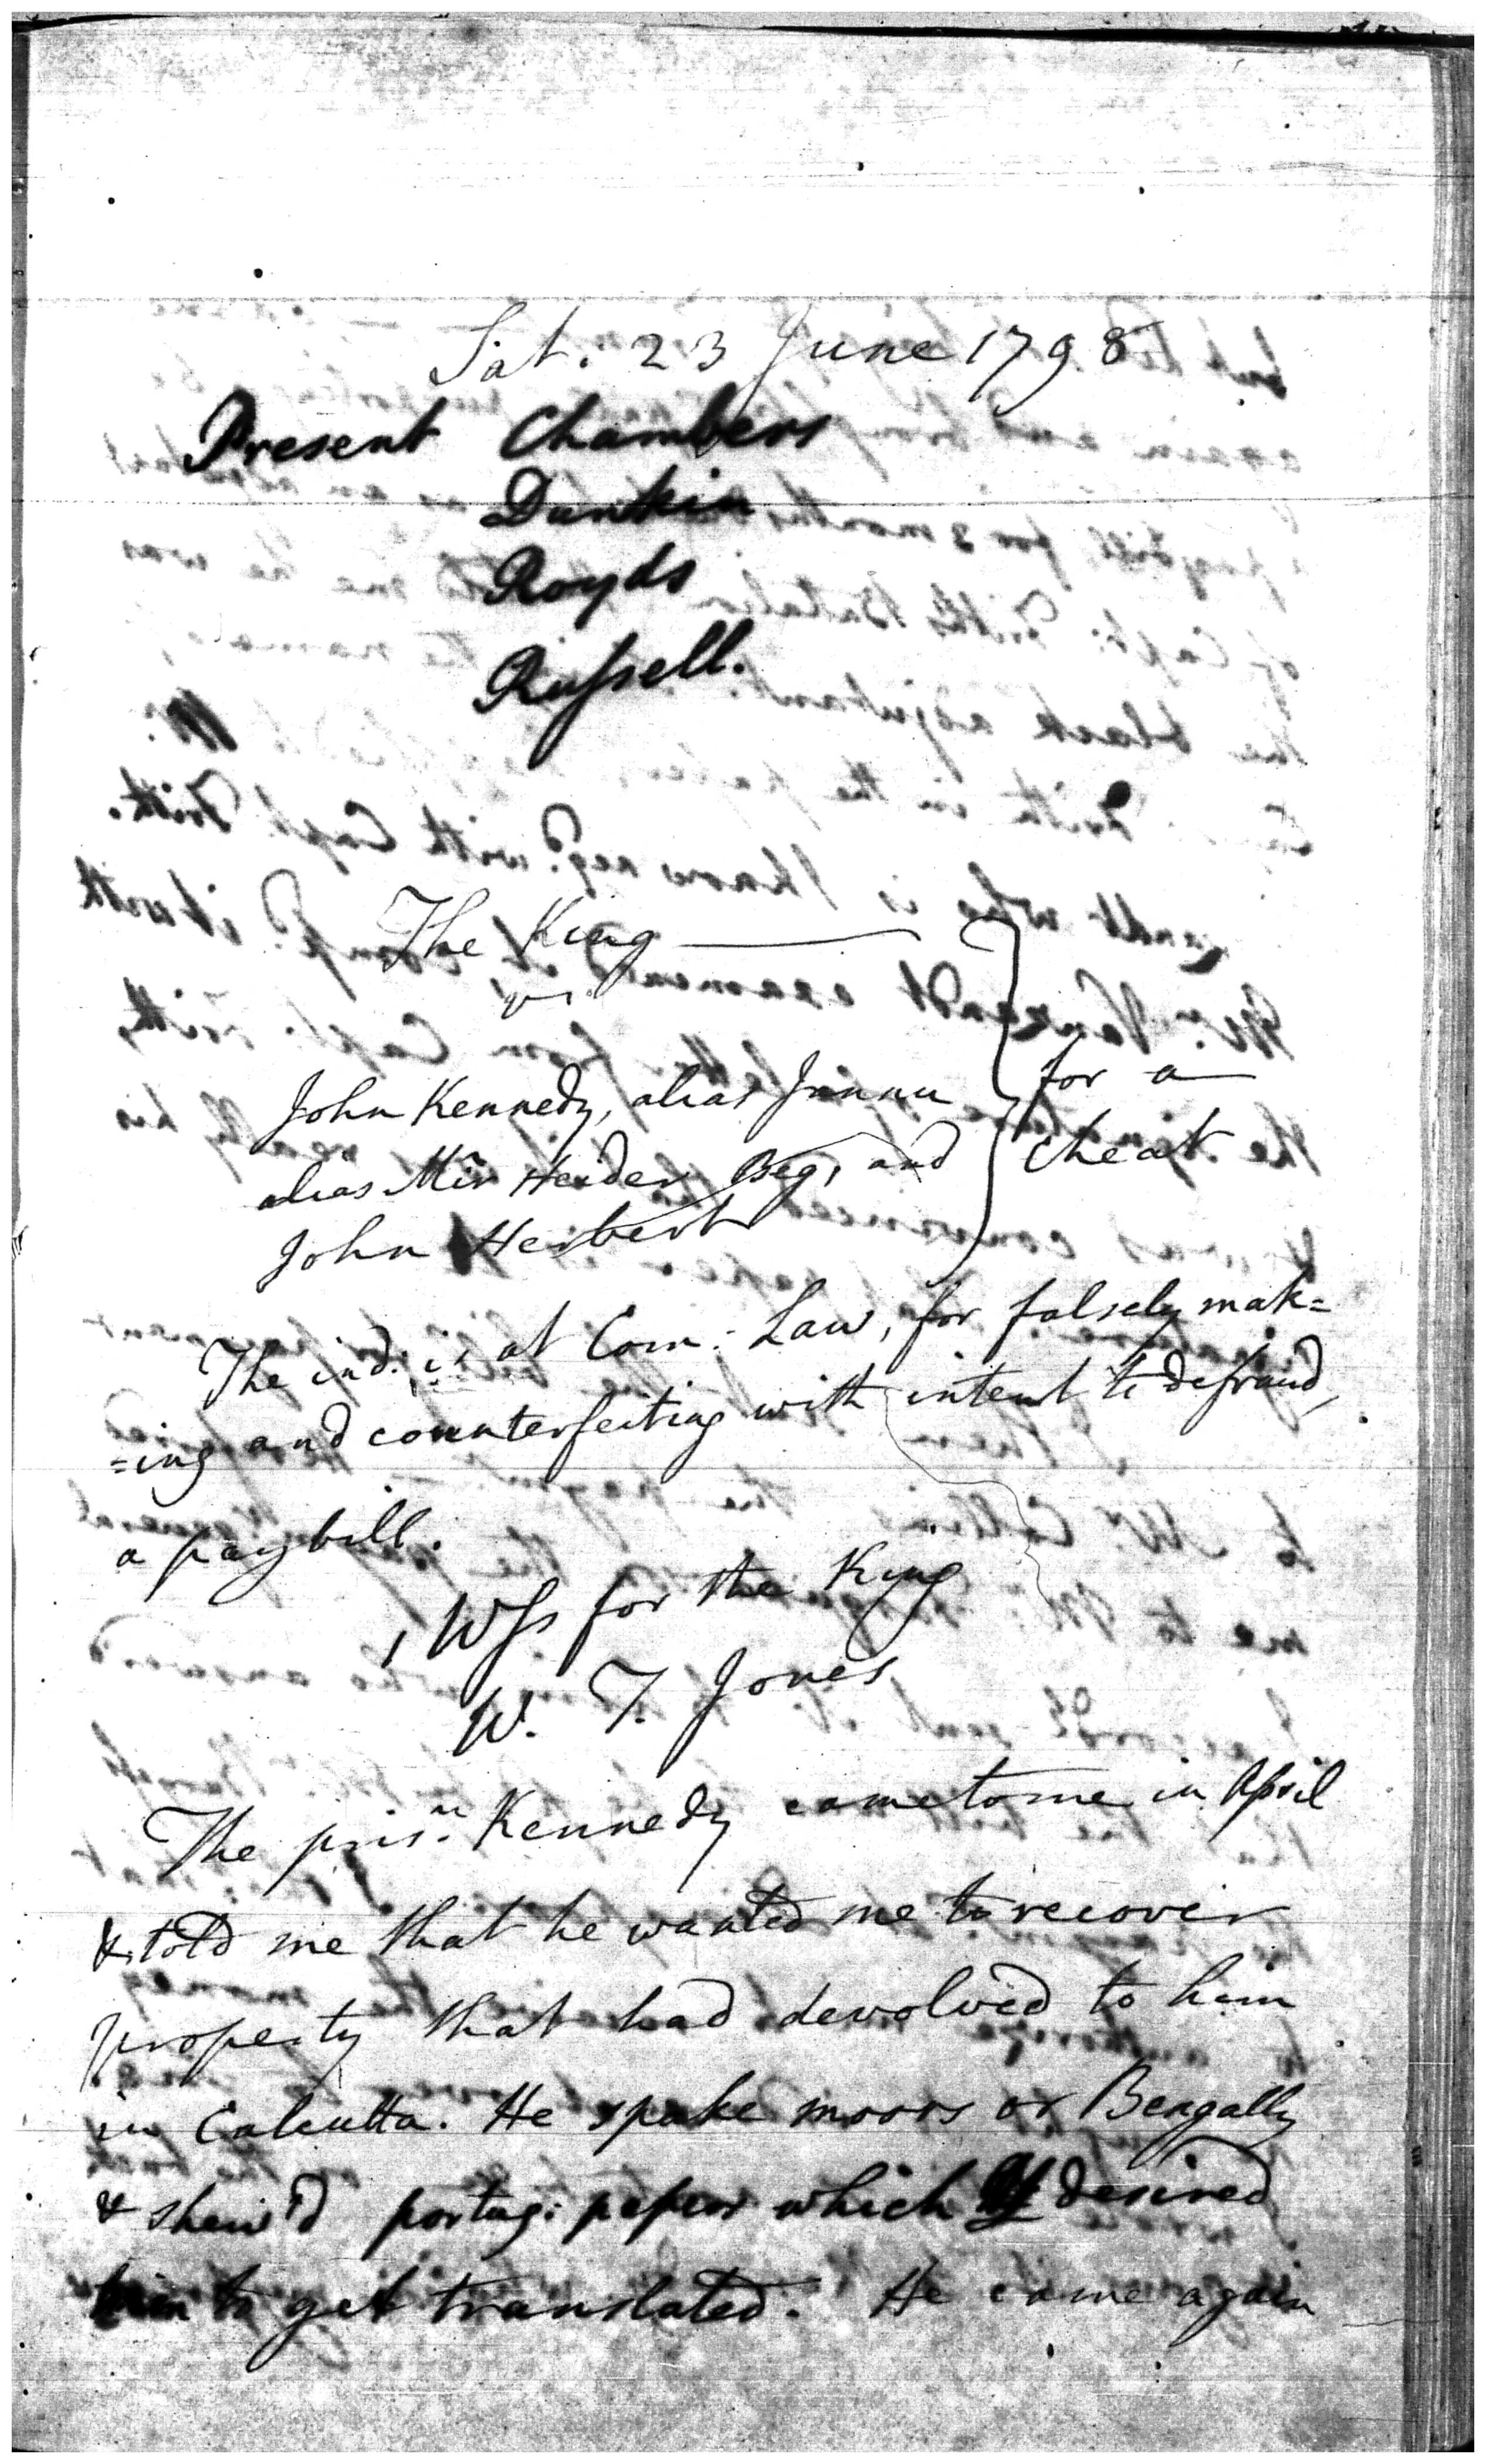 Sat. 23 June 1798
Present Chambers
Dunkin
Royds
Russell.
The King
vs.
John Kennedy, alias Junnu
alias Mir Heider Beg, and
John Herbert
for a
cheat.
The ind: is at Com: Law, for falsely mak=
=ing and counterfeiting with intent to defraud,
a paybill.
1 Wss for the King
W. T. Jones
The prisr. Kennedy came to me in April
& told me that he wanted me to recover
property that had devolved to him
in Calcutta. He spoke moors or Bengally
& shew'd portug: papers which I desired
him to get translated. He came again